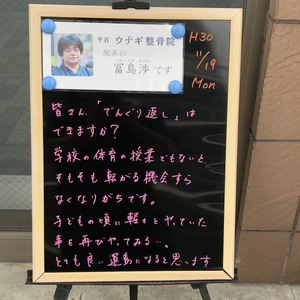 千石 ウナギ整骨院
院長の
冨島渉です
H30
11/19
Mon
皆さん「でんぐり返し」は
できますか?
学校の体育の授業でもないと
そもそも転がる機会すら
なくなりがちです。
子どもの頃に軽々とやっていた
事を再びやってみる…。
とても良い運動になると思います